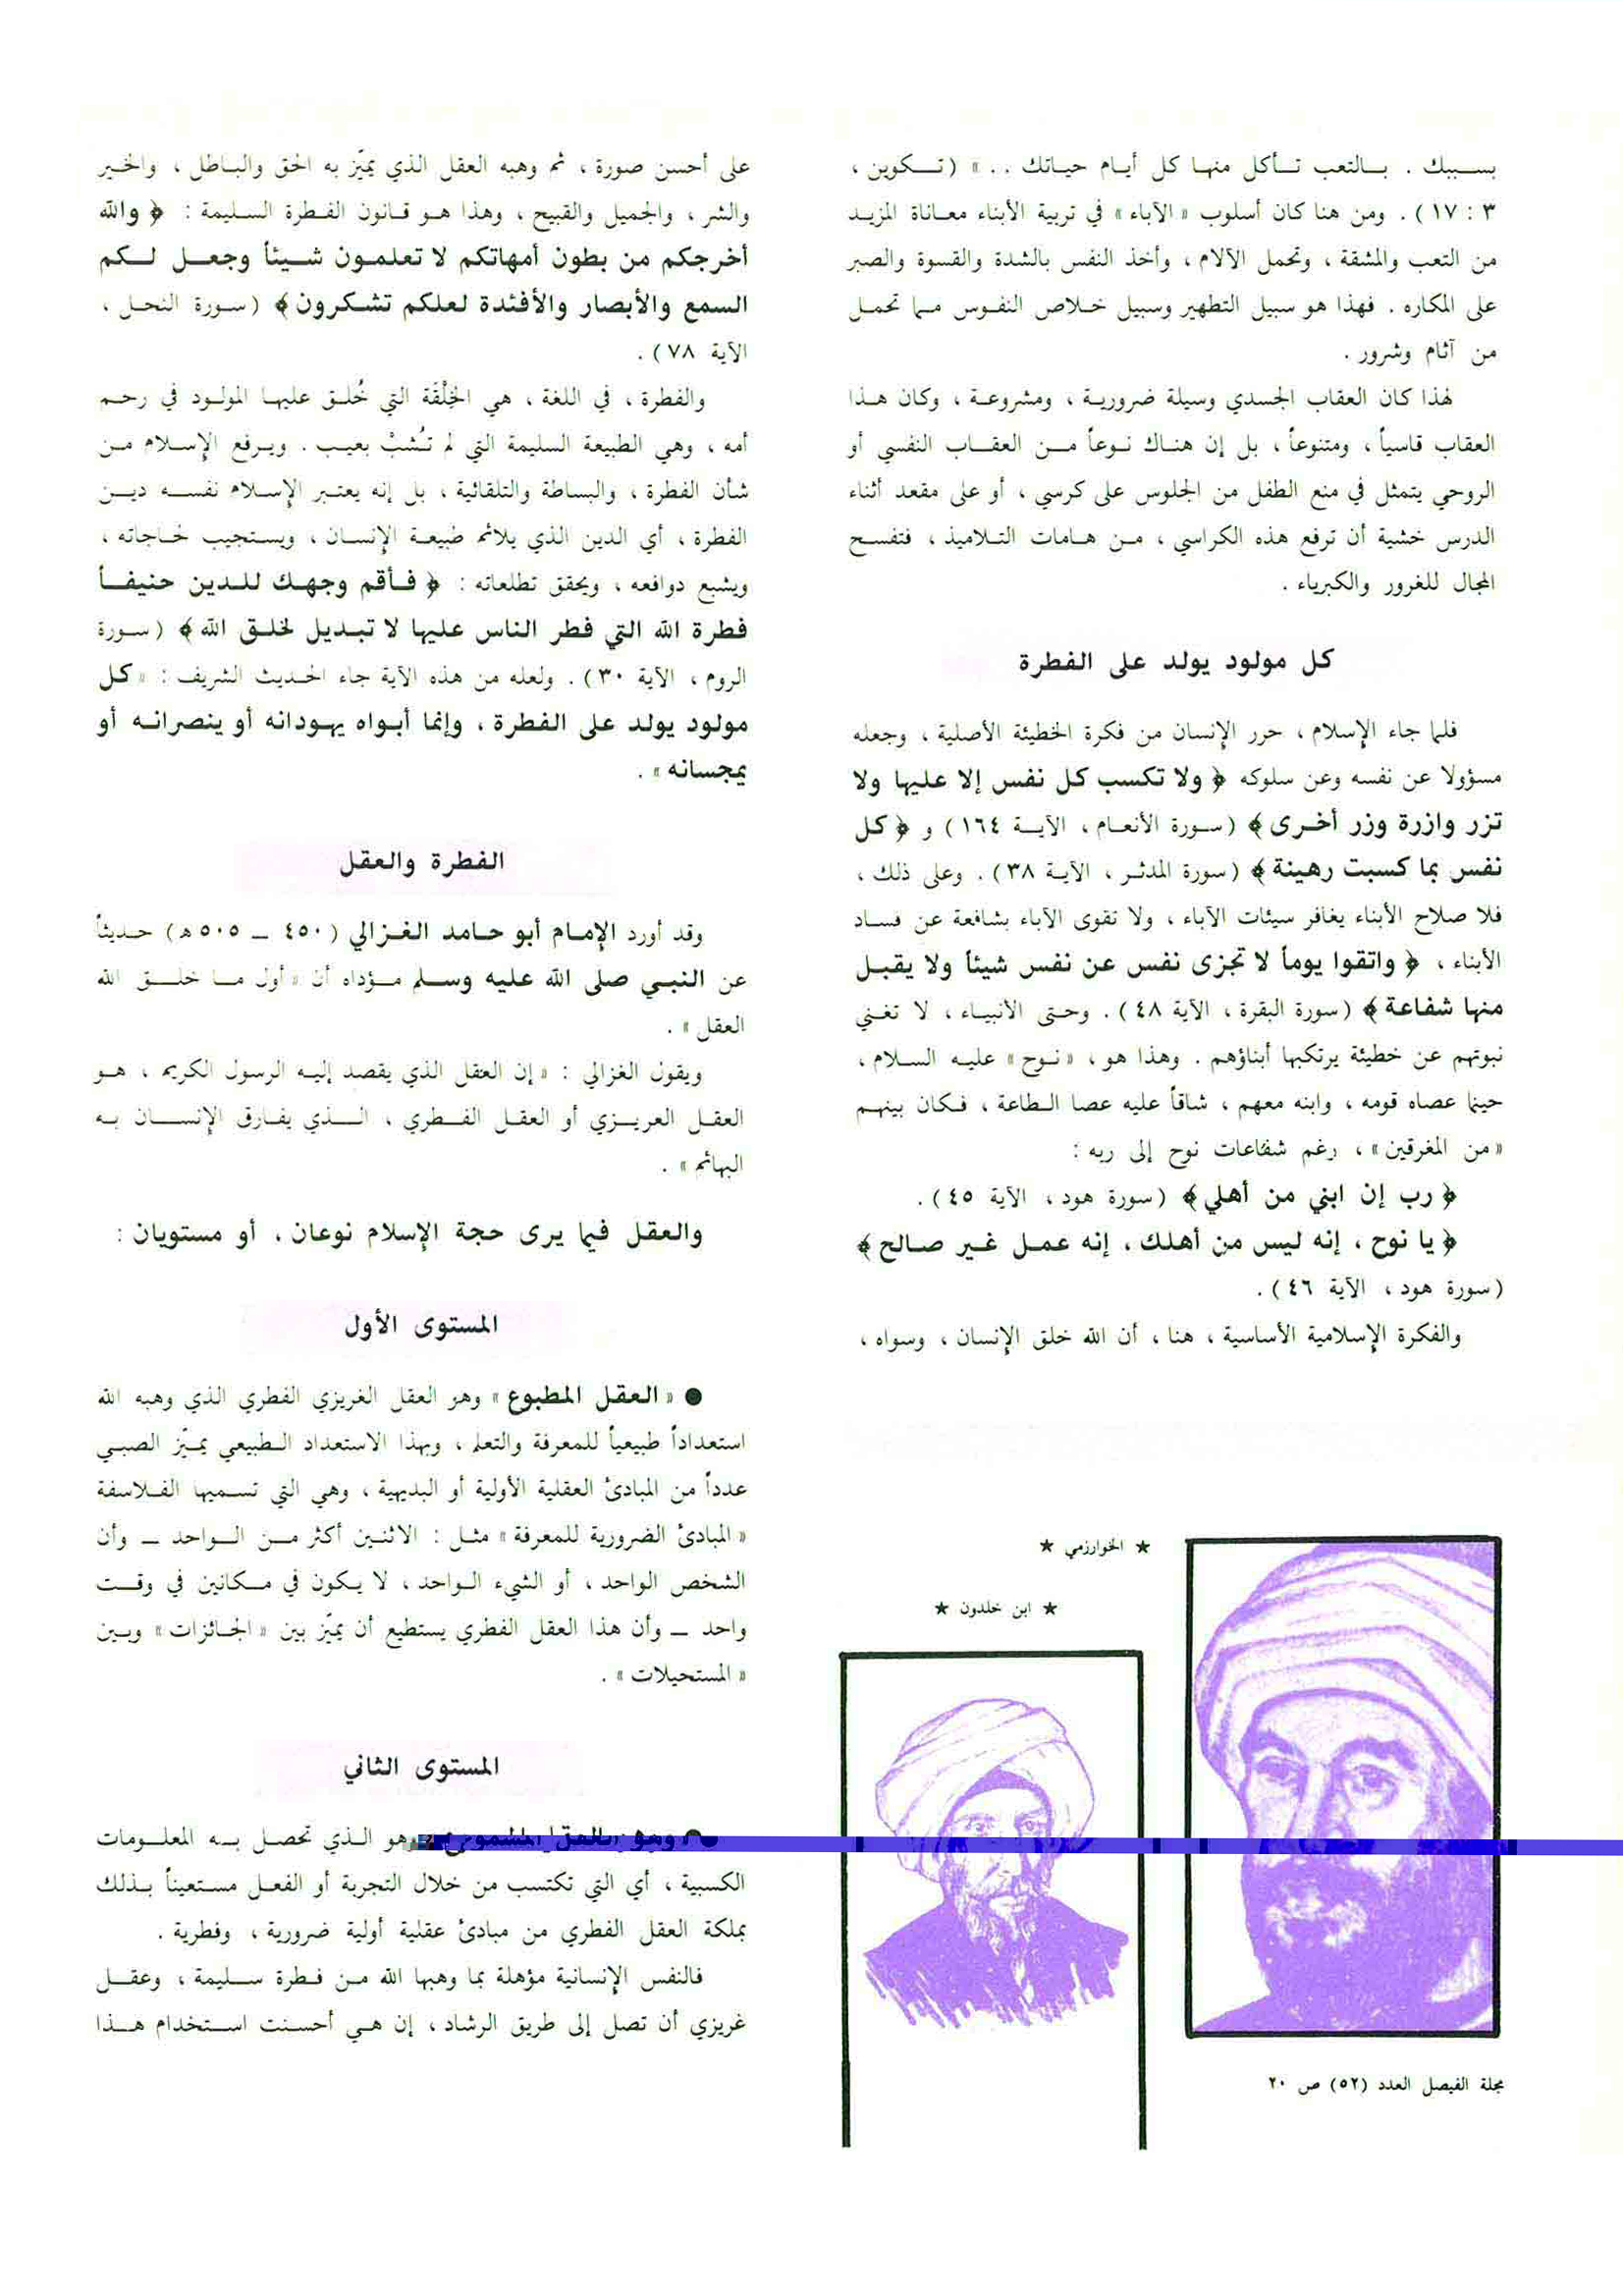 بسببك . بالتعب تأكل منها كل أيام حياتك .. » (تكوين ،
٣ : ١٧) . ومن هنا كان أسلوب «الآباء» في تربية الأبناء معاناة المزيد
من التعب والمشقة ، وتحمل الآلام ، وأخذ النفس بالشدة والقسوة والصبر
على المكاره . فهذا هو سبيل التطهير وسبيل خلاص النفوس مما تحمل
من آثام وشرور .
لهذا كان العقاب الجسدي وسيلة ضرورية ، ومشروعة ، وكان هذا
العقاب قاسياً ، ومتنوعاً ، بل إن هناك نوعاً من العقاب النفسي أو
الروحي يتمثل في منع الطفل من الجلوس على كرسي ، أو على مقعد أثناء
الدرس خشية أن ترفع هذه الكراسي ، من هامات التلاميذ ، فتفسح
المجال للغرور والكبرياء .
كل مولود يولد على الفطرة
فلما جاء الإسلام ، حرر الإنسان من فكرة الخطيئة الأصلية ، وجعله
مسؤولا عن نفسه وعن سلوكه ﴿ ولا تكسب كل نفس إلا عليها ولا
تزر وازرة وزر أخرى ﴾ (سورة الأنعام ، الآية ١٦٤) و ﴿ كل
نفس بما كسبت رهينة ﴾ (سورة المدثر ، الآية ٣٨) . وعلى ذلك ،
فلا صلاح الأبناء يغافر سيئات الآباء ، ولا تقوى الآباء بشافعة عن فساد
الأبناء ، ﴿ واتقوا يوماً لا تجزى نفس عن نفس شيئاً ولا يقبل
منها شفاعة ﴾ (سورة البقرة ، الآية ٤٨) . وحتى الأنبياء ، لا تغني
نبوتهم عن خطيئة يرتكبها أبناؤهم . وهذا هو ، «نوح» عليه السلام ،
حينما عصاه قومه ، وابنه معهم ، شاقاً عليه عصا الطاعة ، فكان بينهم
«من المغرقين» ، رغم شفاعات نوح إلى ربه :
﴿ رب إن ابني من أهلي ﴾ (سورة هود ، الآية ٤٥) .
﴿ يا نوح ، إنه ليس من أهلك ، إنه عمل غير صالح ﴾
(سورة هود ، الآية ٤٦) .
والفكرة الإسلامية الأساسية ، هنا ، أن الله خلق الإنسان ، وسواه ،
★ الخوارزمي ★
★ ابن خلدون ★
مجلة الفيصل العدد (٥٢) ص ٢٠
على أحسن صورة ، ثم وهبه العقل الذي يميّز به الحق والباطل ، والخير
والشر ، والجميل والقبيح ، وهذا هو قانون الفطرة السليمة : ﴿ والله
أخرجكم من بطون أمهاتكم لا تعلمون شيئاً وجعل لكم
السمع والأبصار والأفئدة لعلكم تشكرون ﴾ (سورة النحل ،
الآية ٧٨) .
والفطرة ، في اللغة ، هي الخِلْقَة التي خُلق عليها المولود في رحم
أمه ، وهي الطبيعة السليمة التي لم تُشبْ بعيب . ويرفع الإسلام من
شأن الفطرة ، والبساطة والتلقائية ، بل إنه يعتبر الإسلام نفسه دين
الفطرة ، أي الدين الذي يلائم طبيعة الإنسان ، ويستجيب لحاجاته ،
ويشبع دوافعه ، ويحقق تطلعاته : ﴿ فأقم وجهك للدين حنيفاً
فطرة الله التي فطر الناس عليها لا تبديل لخلق الله ﴾ (سورة
الروم ، الآية ٣٠) . ولعله من هذه الآية جاء الحديث الشريف : « كل
مولود يولد على الفطرة ، وإنما أبواه يهودانه أو ينصرانه أو
يمجسانه » .
الفطرة والعقل
وقد أورد الإمام أبو حامد الغزالي (٤٥٠ – ٥٠٥ ه) حديثاً
عن النبي صلى الله عليه وسلم مؤداه أن « أول ما خلق الله
العقل » .
ويقول الغزالي : « إن العقل الذي يقصد إليه الرسول الكريم ، هو
العقل العريزي أو العقل الفطري ، الذي يفارق الإنسان به
البهائم » .
والعقل فيما يرى حجة الإسلام نوعان ، أو مستويان :
المستوى الأول
● « العقل المطبوع » وهو العقل الغريزي الفطري الذي وهبه الله
استعداداً طبيعياً للمعرفة والتعلم ، وبهذا الاستعداد الطبيعي يميّز الصبي
عدداً من المبادئ العقلية الأولية أو البديهية ، وهي التي تسميها الفلاسفة
« المبادئ الضرورية للمعرفة » مثل : الاثنين أكثر من الواحد – وأن
الشخص الواحد ، أو الشيء الواحد ، لا يكون في مكانين في وقت
واحد – وأن هذا العقل الفطري يستطيع أن يميّز بين « الجائزات » وبين
« المستحيلات » .
المستوى الثاني
وهو الذي تحصل به المعلومات
الكسبية ، أي التي تكتسب من خلال التجربة أو الفعل مستعيناً بذلك
بملكة العقل الفطري من مبادئ عقلية أولية ضرورية ، وفطرية .
فالنفس الإنسانية مؤهلة بما وهبها الله من فطرة سليمة ، وعقل
غريزي أن تصل إلى طريق الرشاد ، إن هي أحسنت استخدام هذا